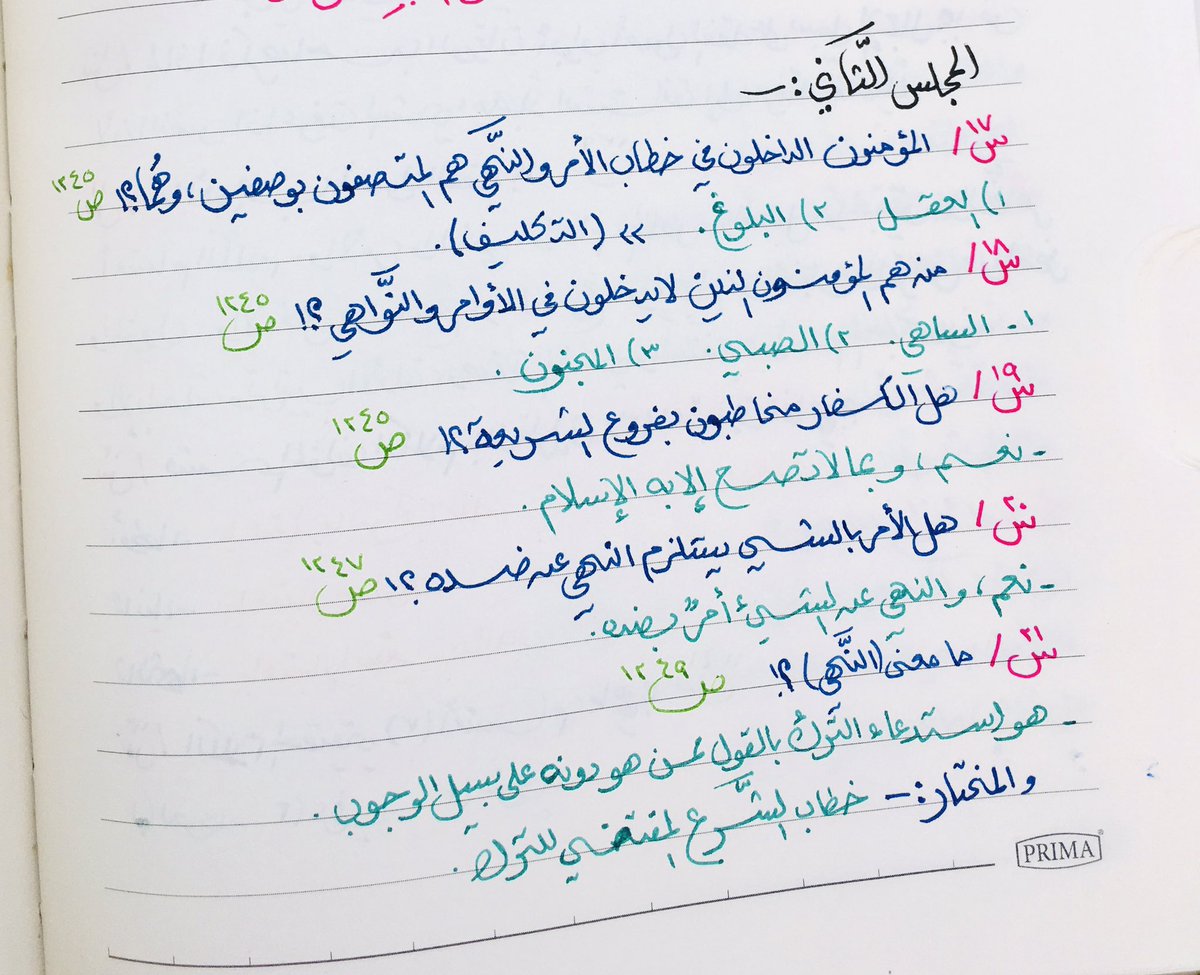 المجلس الثَّاني :-
س١٧/ المؤمنون الداخلون في خطاب الأمر والنَّهي هم المتصفون بوصفين، وهُما؟! ص ١٢٤٥
١) العقل ٢) البلوغ. ،، (التكليف).
س١٨/ من هم المؤمنون الذين لا يدخلون في الأوامر والنَّواهي؟! ص ١٢٤٥
١- الساهي. ٢) الصبي. ٣) المجنون.
س١٩/ هل الكفار مخاطبون بفروع الشريعة؟! ص ١٢٤٥
- نعم، وبما لا تصح إلا به الإسلام.
س٢٠/ هل الأمر بالشيء يستلزم النهي عن ضده؟! ص ١٢٤٧
- نعم، والنهي عن الشيء أمرٌ بضده.
س٢١/ ما معنى (النَّهي)؟! ص ١٢٤٩
- هو استدعاء التَّرك بالقول لمن هو دونه على سبيل الوجوب.
والمختار:- خطاب الشَّرع المقتضي للترك.
PRIMA